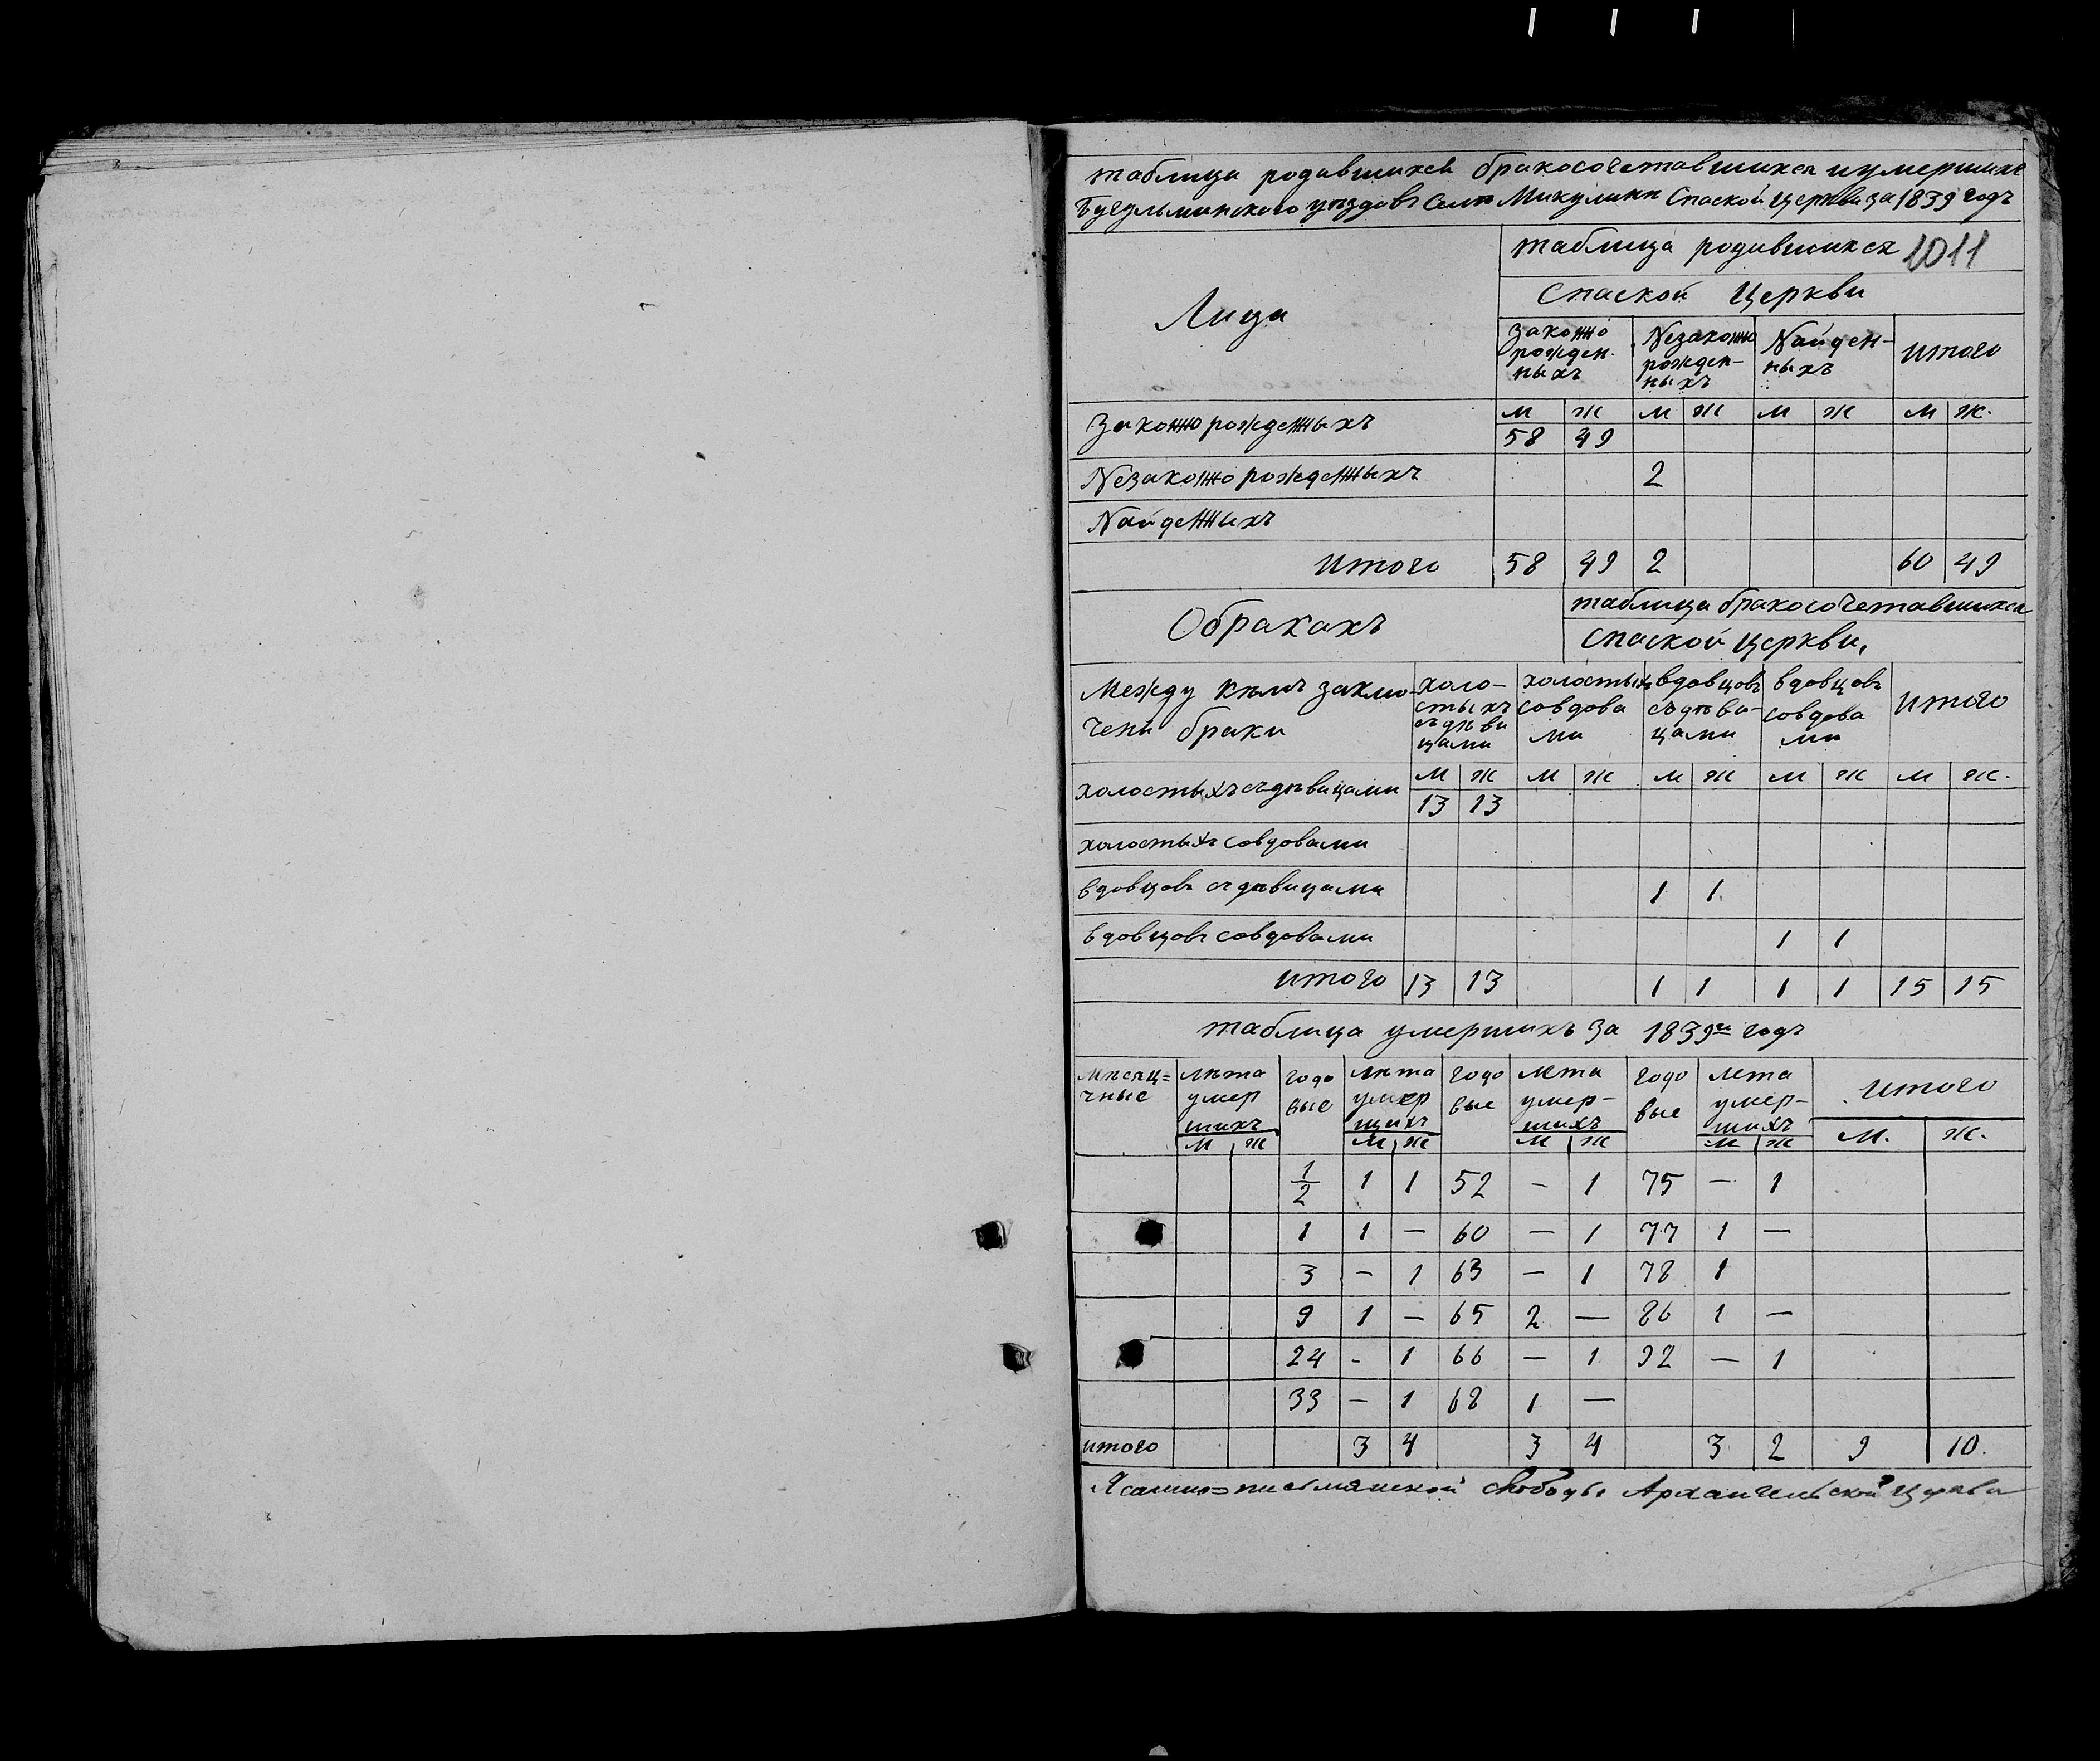 таблица родившихся бракосочетавшихся и умершихъ
Бугульминского уѣздовъ Села Микулина Спаской церкви за 1839 годъ
таблица родившихся 1011
Лица
Спаской Церкви
законно рожден. ныхъ Незаконно рожден- ныхъ Найден- ныхъ итого
м ж м ж м ж м ж.
Законно рожденныхъ 58 49
Незаконно рожденныхъ 2
Найденныхъ
итого 58 49 2 60 49
О бракахъ таблица бракосочетавшихся
Спаской церкви,
Между кѣмъ заклю- чени браки холо- стыхъ съ дѣви цами холостыхъ со вдова ми вдовцовъ съ дѣви- цами вдовцовъ со вдова ми итого
м ж м ж м ж м ж м ж.
холостыхъ съ дѣвицами 13 13
холостыхъ со вдовами
вдовцовъ съ дѣвицами 1 1
вдовцовъ со вдовами 1 1
итого 13 13 1 1 1 1 15 15
таблица умершихъ за 1839й годъ
мѣсяц= чные лѣта умер шихъ годо вые лѣта умер шихъ годо вые лета умер- шихъ годо вые лета умер- шихъ итого
м ж м ж м ж м ж м. ж.
1/2 1 1 52 — 1 75 — 1
1 1 — 60 — 1 77 1 —
3 — 1 63 — 1 78 1
9 1 — 65 2 — 86 1 —
24 - 1 66 — 1 92 — 1
33 — 1 68 1 —
итого 3 4 3 4 3 2 9 10.
письмянской слободы Архангельской церкви